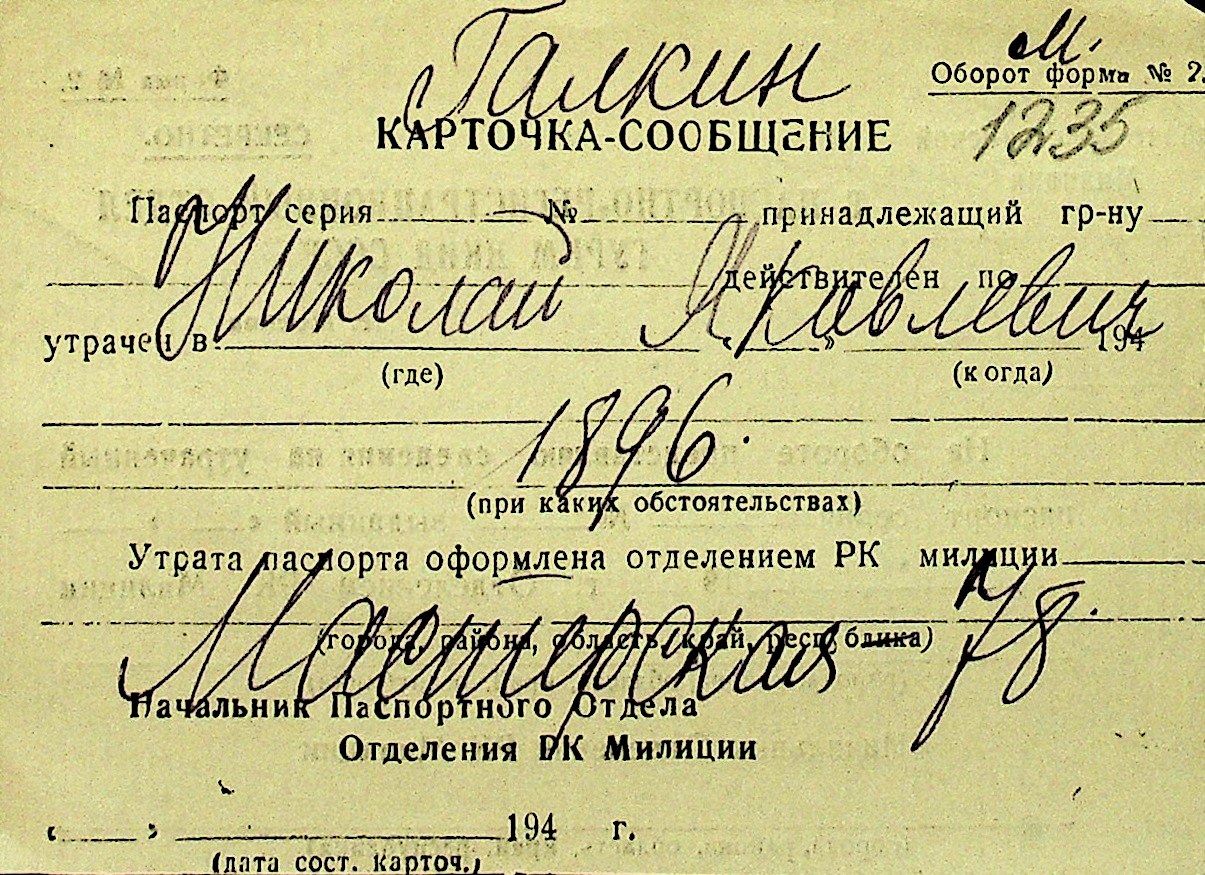 Галкин М.
Оборот форма № 2.
КАРТОЧКА-СООБЩЕНИЕ 1235
Паспорт серия № принадлежащий гр-ну
Николай Яковлевич
действителен по
утрачен в „ “ 194
(где) (когда)
1896.
(при каких обстоятельствах)
Утрата паспорта оформлена отделением РК милиции
Мастерская 78.
(города, района, область, край, республика)
Начальник Паспортного Отдела
Отделения РК Милиции
„ “ 194 г.
(дата сост. карточ.)